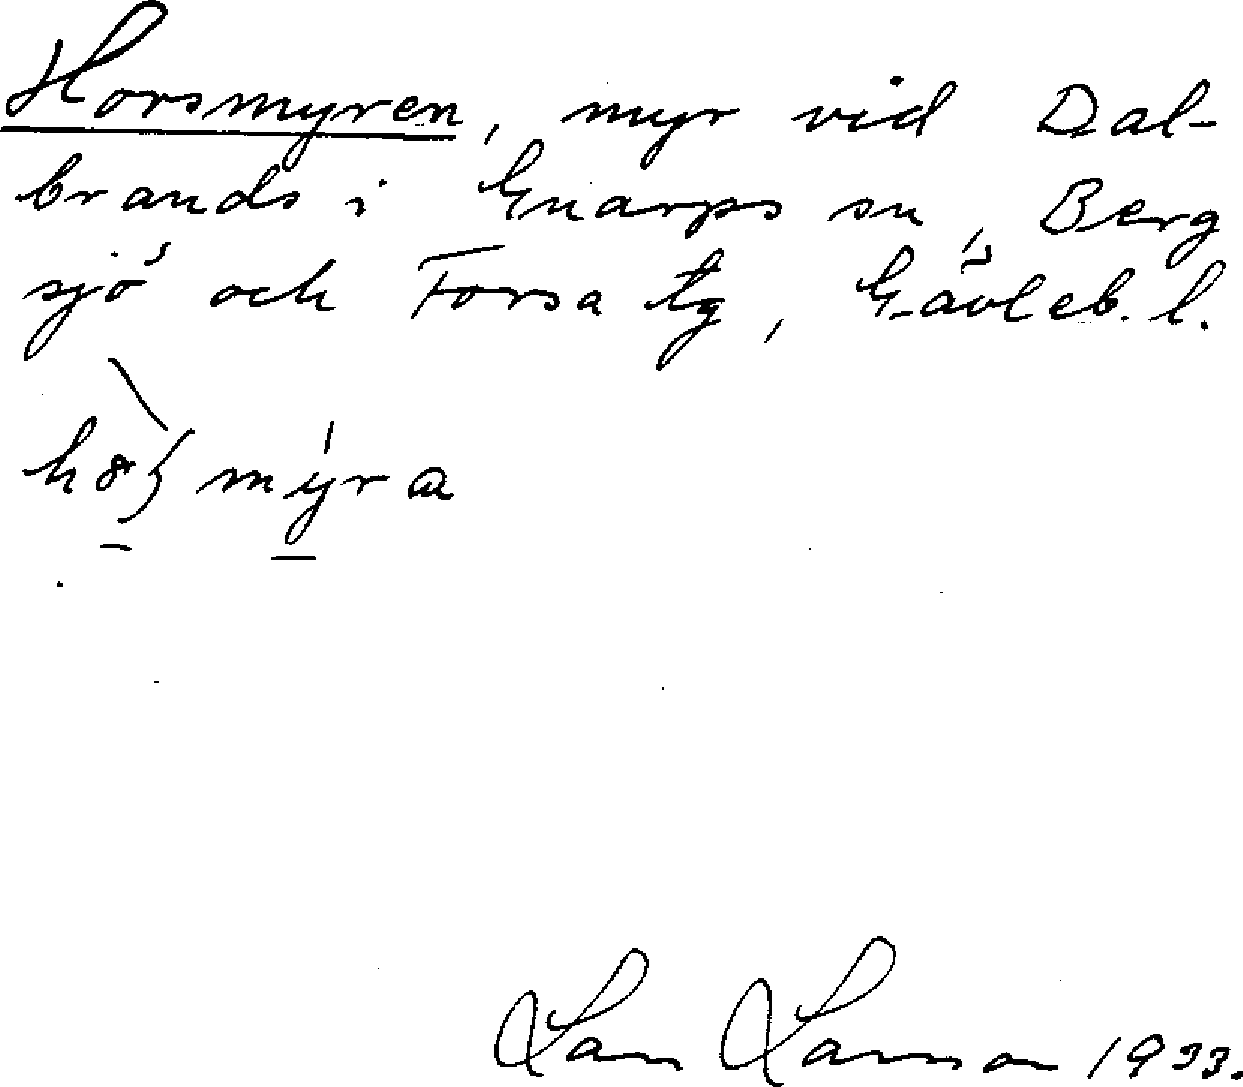 Horsmyren, myr vid Dal-
brands i Gnarps sn, Berg
sjö och Forsa tg, Gävleb. l.
Lars Larsson 1933.